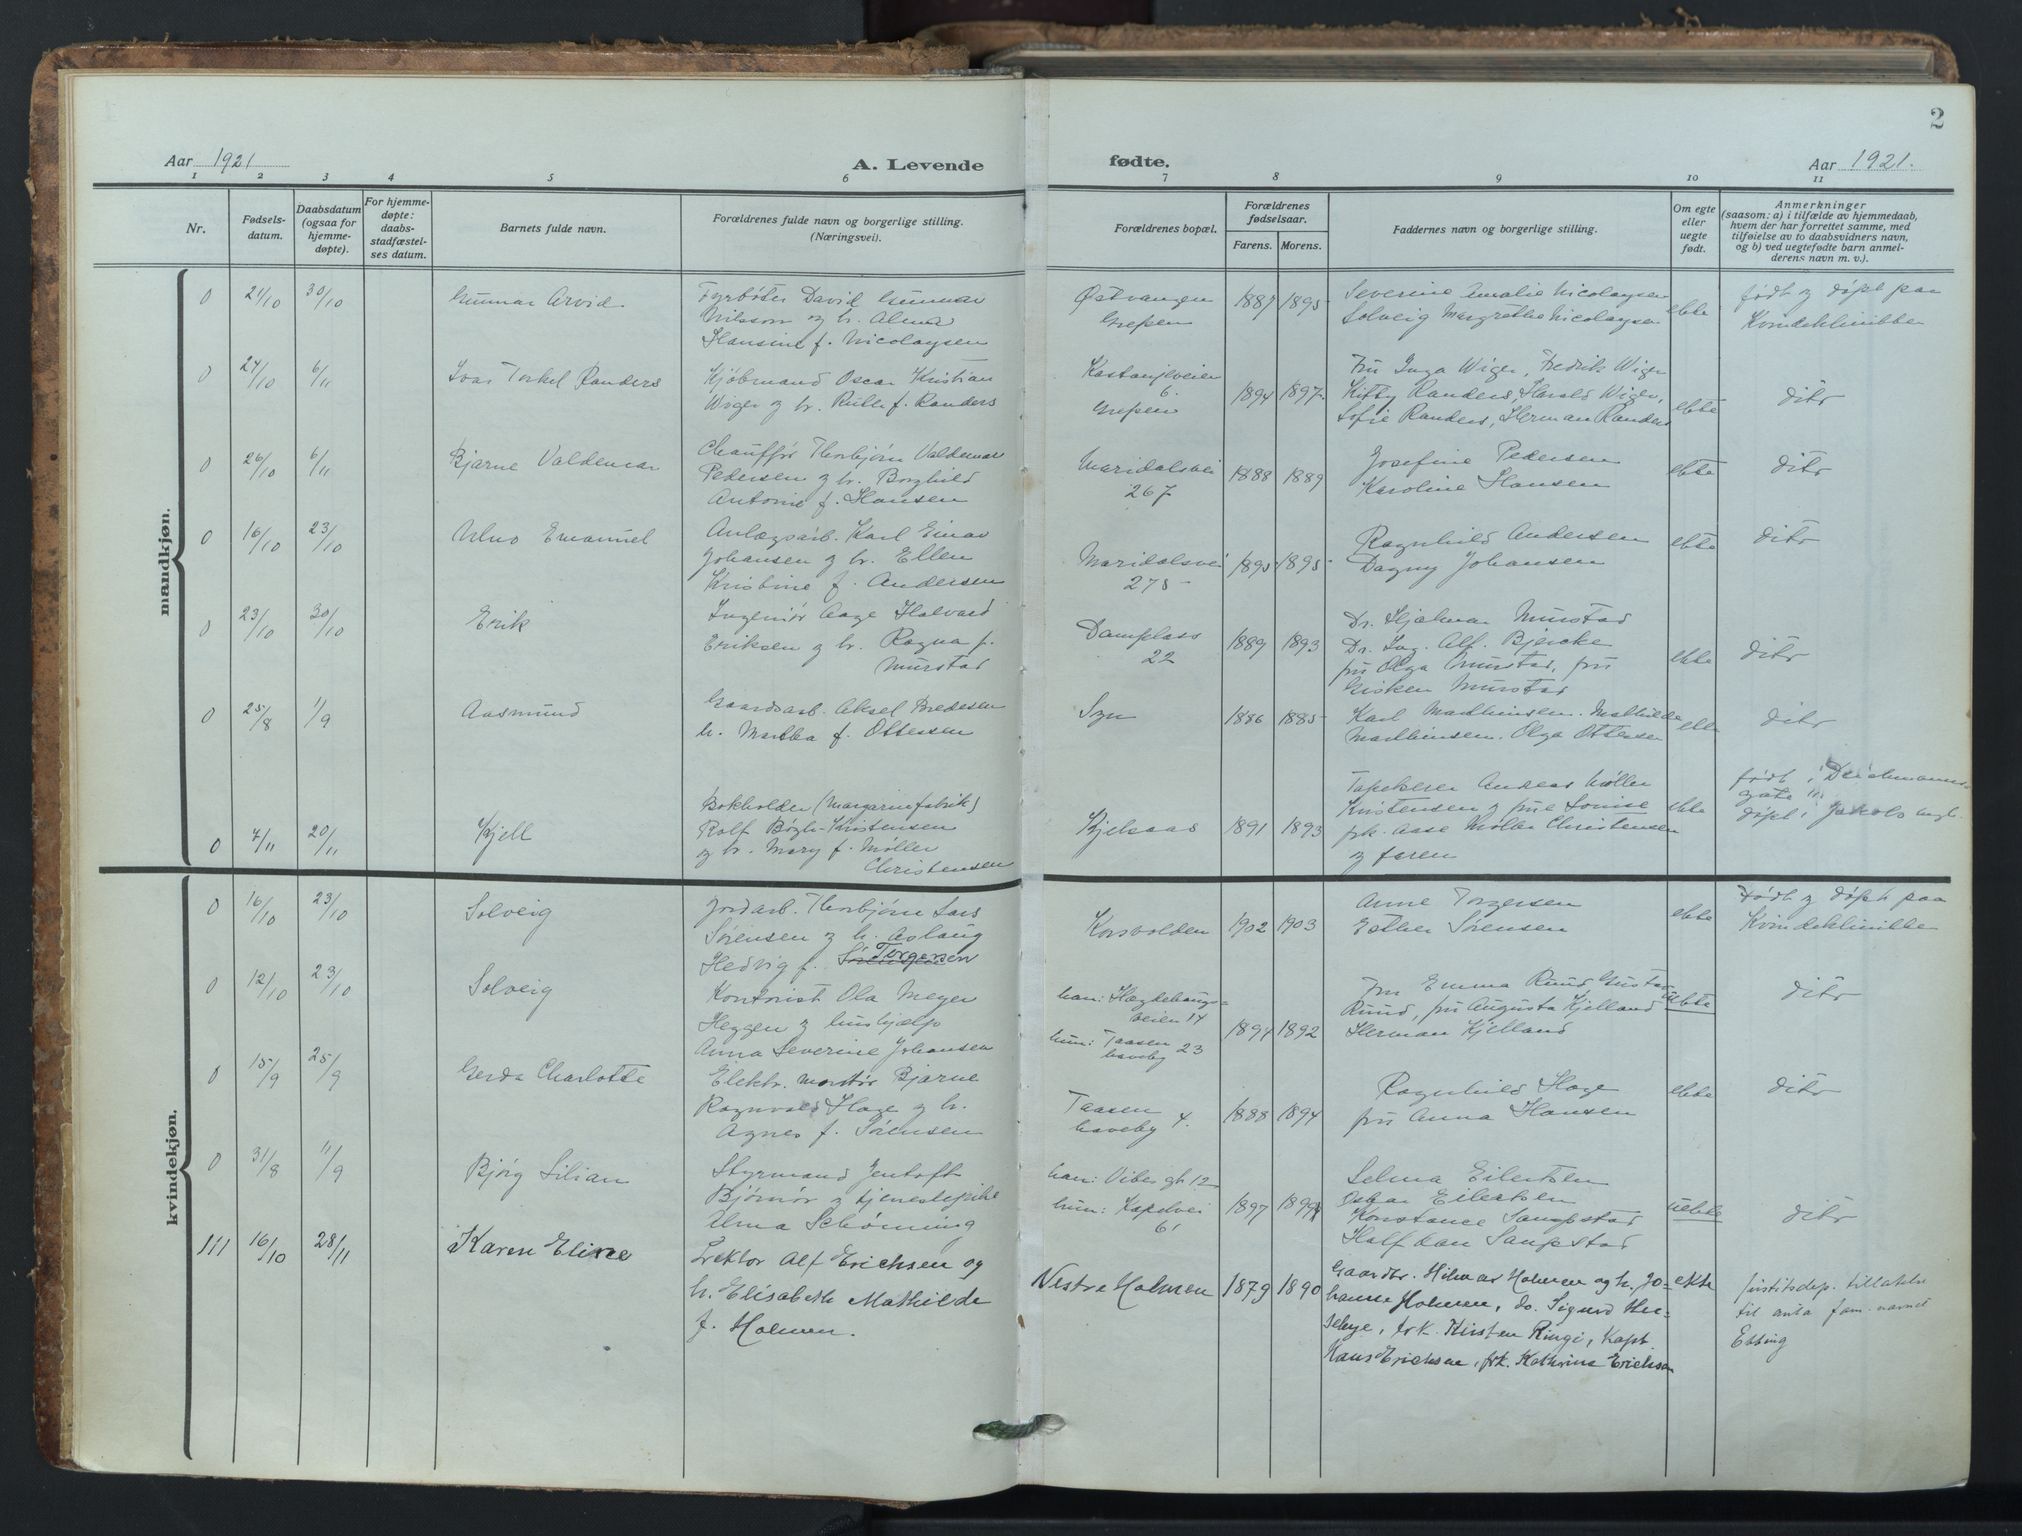 2
Aar 1921
A. Levende
fødte.
Aar 1921.
1 2 3 4 5 6 7 8 9 10 11
Nr.
Fødsels-
datum.
Daabsdatum
(ogsaa for
hjemme-
døpte).
For hjemme-
døpte:
daabs-
stadfæstel-
ses datum.
Barnets fulde navn.
Forældrenes fulde navn og borgerlige stilling.
(Næringsvei).
Forældrenes bopæl.
Forældrenes
fødselsaar.
Farens. Morens.
Faddernes navn og borgerlige stilling.
Om egte
eller
uegte
født.
Anmerkninger
(saasom: a) i tilfælde av hjemmedaab,
hvem der har forrettet samme, med
tilføielse av to daabsvidners navn,
og b) ved uegtefødte barn anmel-
derens navn m. v.).
mandkjøn.
0 21/10 30/10 Gunnar Arvid
Fyrbøter David Gunnar
Nilsson og h. Alma
Hansine f. Nicolaysen
Østvangen
Grefsen
1887 1895
Severine Amalie Nicolaysen
Solveig Margrethe Nicolaysen
ekte
født og døpt paa
Kvindeklinikke
0 24/10 6/11 Ivar Torkel Randers
Kjøbmand Oscar Kristian
Wiger og h. Ruth f. Randers
Kastanjeveien
6.
Grefsen
1894 1897
Fru Inga Wiger, Fredrik Wiger
Kitty Randers, Harald Wiger,
Sofie Randers, Herman Randers
ekte
dito
0 26/10 6/11 Bjarne Valdemar
Chauffør Thorbjørn Valdemar
Pedersen og h. Borghild
Antonie f. Hansen
Maridalsvei
267
1888 1889
Josefine Pedersen
Karoline Hansen
ekte
dito
0 16/10 23/10 Emanuel
Anlægsarb. Karl Einar
Johansen og h. Ellen
Kristine f. Andersen
Maridalsvei
275
1895 1895
Ragnhild Andersen
Dagny Johansen
ekte
dito
0 23/10 30/10 Erik
Ingeniør Aage Halvard
Eriksen og h. Ragna f.
Murstad
Damplass
22
1889 1893
Dr. Hjalmar Murstad
Dr. Ing. Alf. Bjercke
fru Olga Murstad, fru
Gisken Murstad
ekte
dito
0 25/8 1/9 Aasmund
Gaardsarb. Aksel Bredesen
h. Martha f. Ottersen
Sogn
1886 1885
Karl Mathisen. Mathilde
Mathisen. Olga Ottersen
ekte
dito
0 7/11 20/11 Kjell
Bokholder (Margarinefabrik)
Rolf Bøgh-Kristensen
og h. Mary f. Møller
Christensen
Kjelsaas
1891 1893
Tapetserer Andreas Møller
Kristensen og frue Louise
frk. Aase Møller Christensen
og faren
ekte
født i Deichmanns
gate 11
døpt i Jakobs
kvindekjøn.
0 16/10 23/10 Solveig
Jordarb. Thorbjørn Lars
Sørensen og h. Aslaug
Hedvig f. Torgersen
Korsvolden
1902 1903
Anne Torgersen
Esther Sørensen
ekte
Født og døpt paa
Kvindeklinikke
0 12/10 23/10 Solveig
Kontorist Ola Meyer
Heggen og hushjælp
Anna Severine Johansen
han: Hagdehaugs-
veien 14
hun: Taasen
haveby 23
1894 1892
Fru Emma Ruud Gustav
Ruud, fru Augusta Kjelland
Herman Kjelland
uekte
dito
0 15/9 25/9 Gerda Charlotte
Elektr. montør Bjarne
Ragnvald Hage og h.
Agnes f. Sørensen
Taasen
haveby 4.
1888 1894
Ragnhild Hage
fru Anna Hansen
ekte
dito
0 31/8 11/9 Bjørg Lilian
Styrmand Jentoft
Bjørnør og tjenestepike
Alma Schønning
han: Vibes gt 12
hun: Kapelvei
6
1897
Selma Eilertsen
Oskar Eilertsen
Konstance Sangstad
Halfdan Sangstad
uekte
dito
111 16/10 28/11 Karen Elise
Lektor Alf Erichsen og
h. Elisabeth Mathilde
f. Holmen.
Vestre Holmen
1879 1890
Gaardbr. Hilmar Holmen og h. Jo-
hanne Holmen, do. Sigurd Hes-
selbye, frk. Kirsten Ringi, Kapt.
Hans Erichsen, frk. Kathrine Erichsen
ekte
Justitsdep. tillatelse
til anta fam. navnet
Ebbing